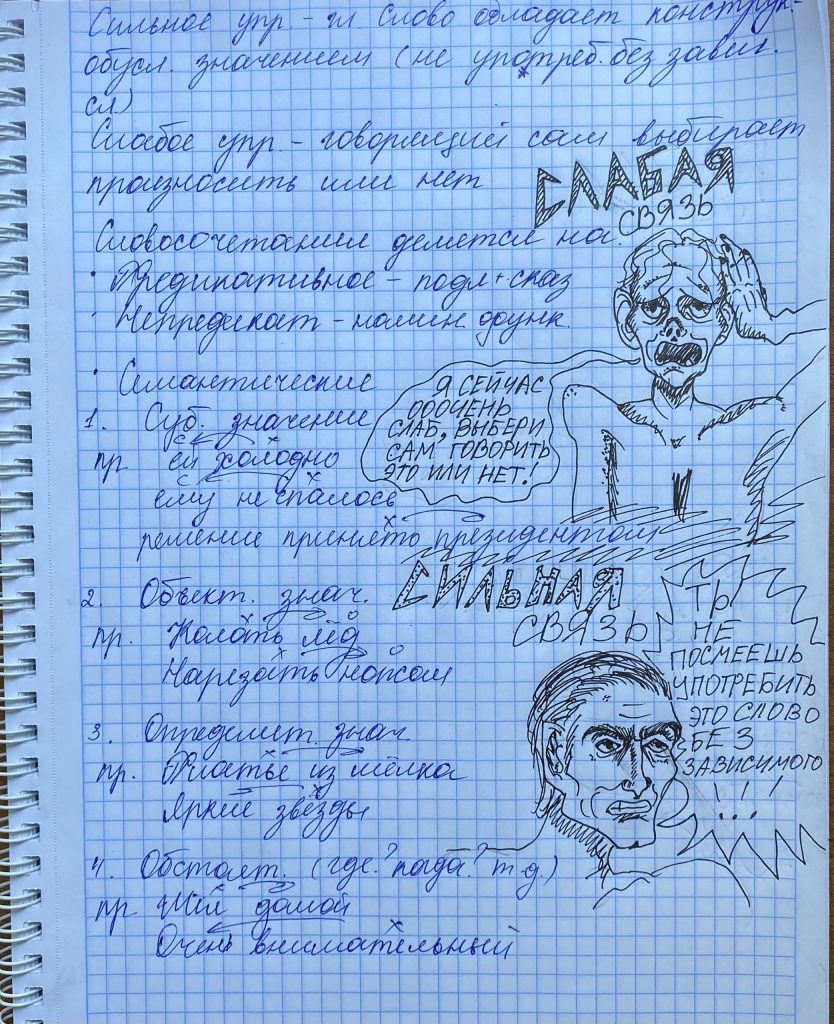 Сильное упр. – гл. слово обладает конструк.-
обусл. значением (не употреб. без завис.
сл)
Слабое упр. – говорящий сам выбирает
произносить или нет
СЛАБАЯ
СВЯЗЬ
Словосочетания делятся на:
· Предикативное – подл + сказ
· Непредикат – номин. функ.
· Семантические
1. Суб. значение
пр. ей холодно
ему не спалось
решение принято президентом
Я СЕЙЧАС
ОООЧЕНЬ
СЛАБ, ВЫБЕРИ
САМ, ГОВОРИТЬ
ЭТО ИЛИ НЕТ!
СИЛЬНАЯ
СВЯЗЬ
2. Объект. знач.
пр. Колоть лёд
Нарезать ножом
ТЫ
НЕ
ПОСМЕЕШЬ
УПОТРЕБИТЬ
ЭТО СЛОВО
БЕЗ
ЗАВИСИМОГО
!!!
3. Определит. знач.
пр. Платье из шёлка
Яркие звёзды
4. Обстоят. (где? когда? т.д.)
пр. Шёл домой
Очень внимательный